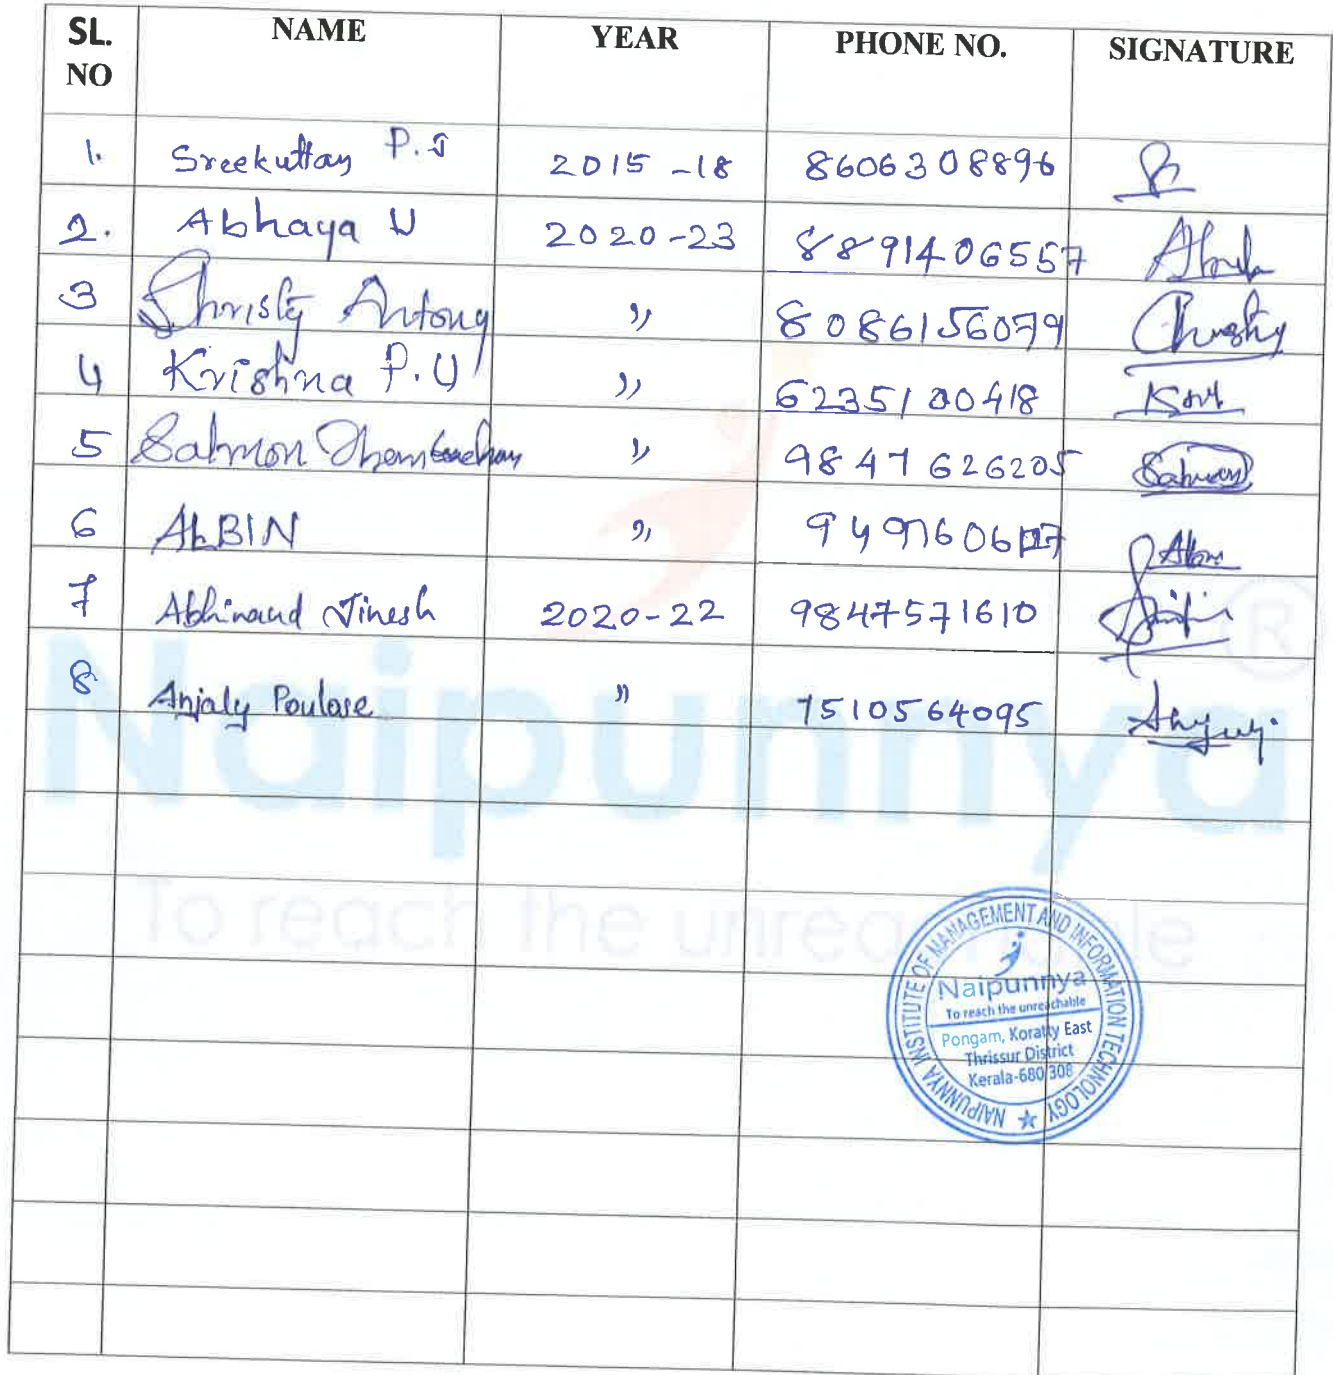 SL. NO NAME YEAR PHONE NO. SIGNATURE
1. Sreekuttan P.S 2015-18 8606308896
2. Abhaya U 2020-23 8891406557
3 Christy Antony " 8086156079 Christy
4 Krishna P.U " 6235100418
5 Salmon " 9847626205 Salmon
6 ALBIN " Albin
7 Abhinand Jinesh 2020-22 9847571610
8 Anjaly Poulose " 7510564095
Naipunnya
To reach the unreachable
NAIPUNNYA INSTITUTE OF MANAGEMENT AND INFORMATION TECHNOLOGY
Naipunnya
To reach the unreachable
Pongam, Koratty East
Thrissur District
Kerala-680 308